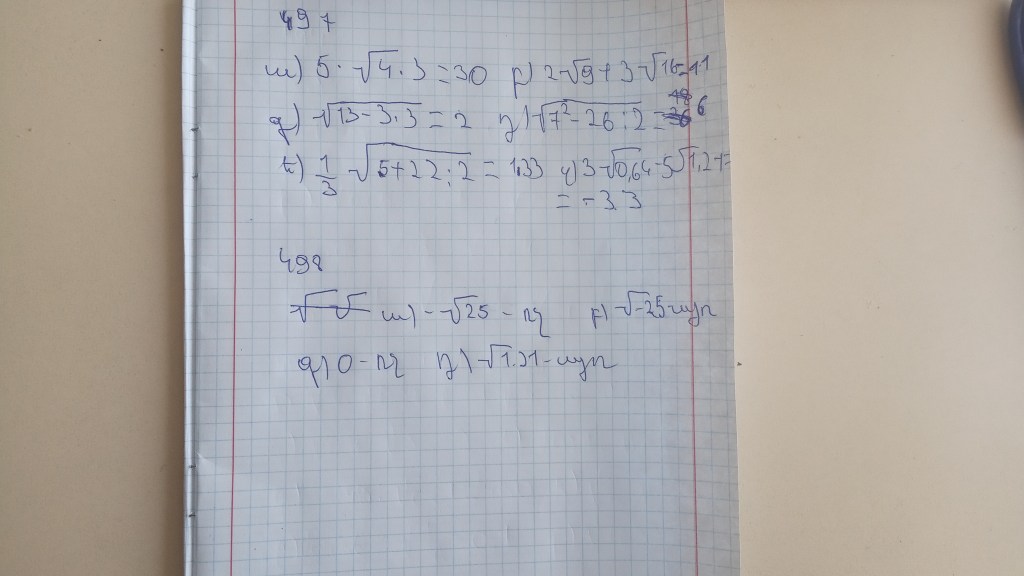 497
ա) 5·√4·3=30 բ) 2√9+3√16=11
գ) √13-3·3=2 դ) √7²-26:2=6
ե) 1/3 √5+22:2=1.33 զ) 3√0,64-5√1,21=
=-3.3
498
ա) -√25 - ոչ բ) √-25 այո
գ) 0 - ոչ դ) √1.21 - այո